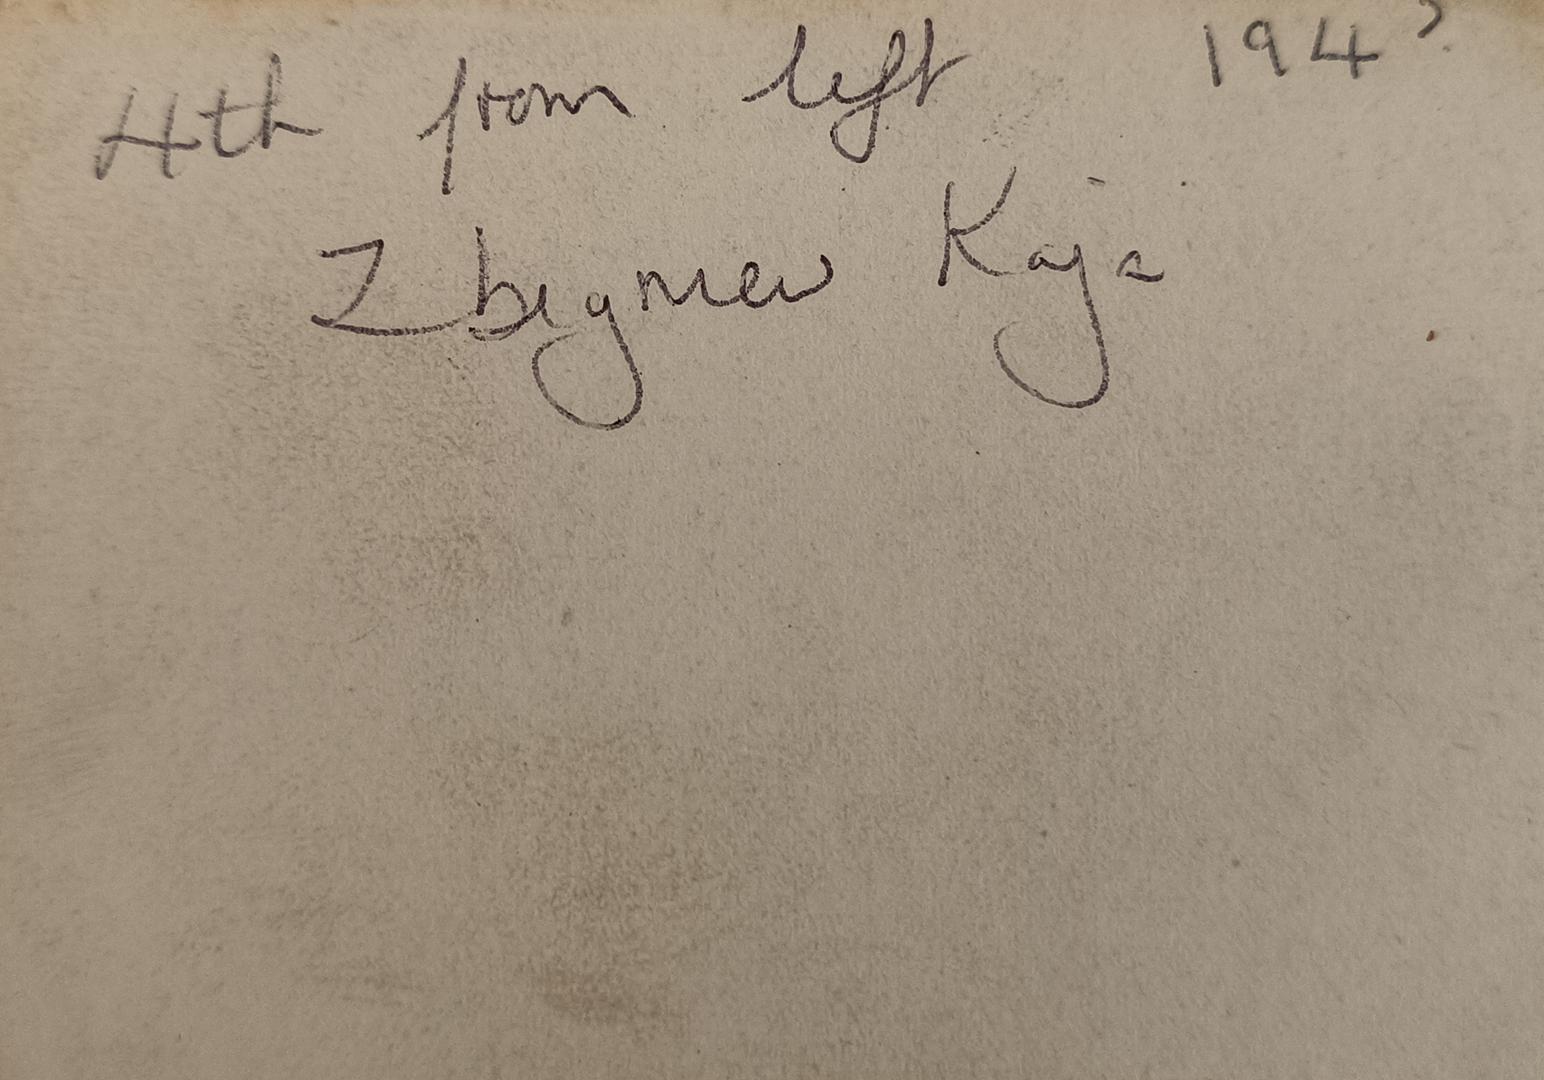 4th from left 194?
Zbigniew Kaja